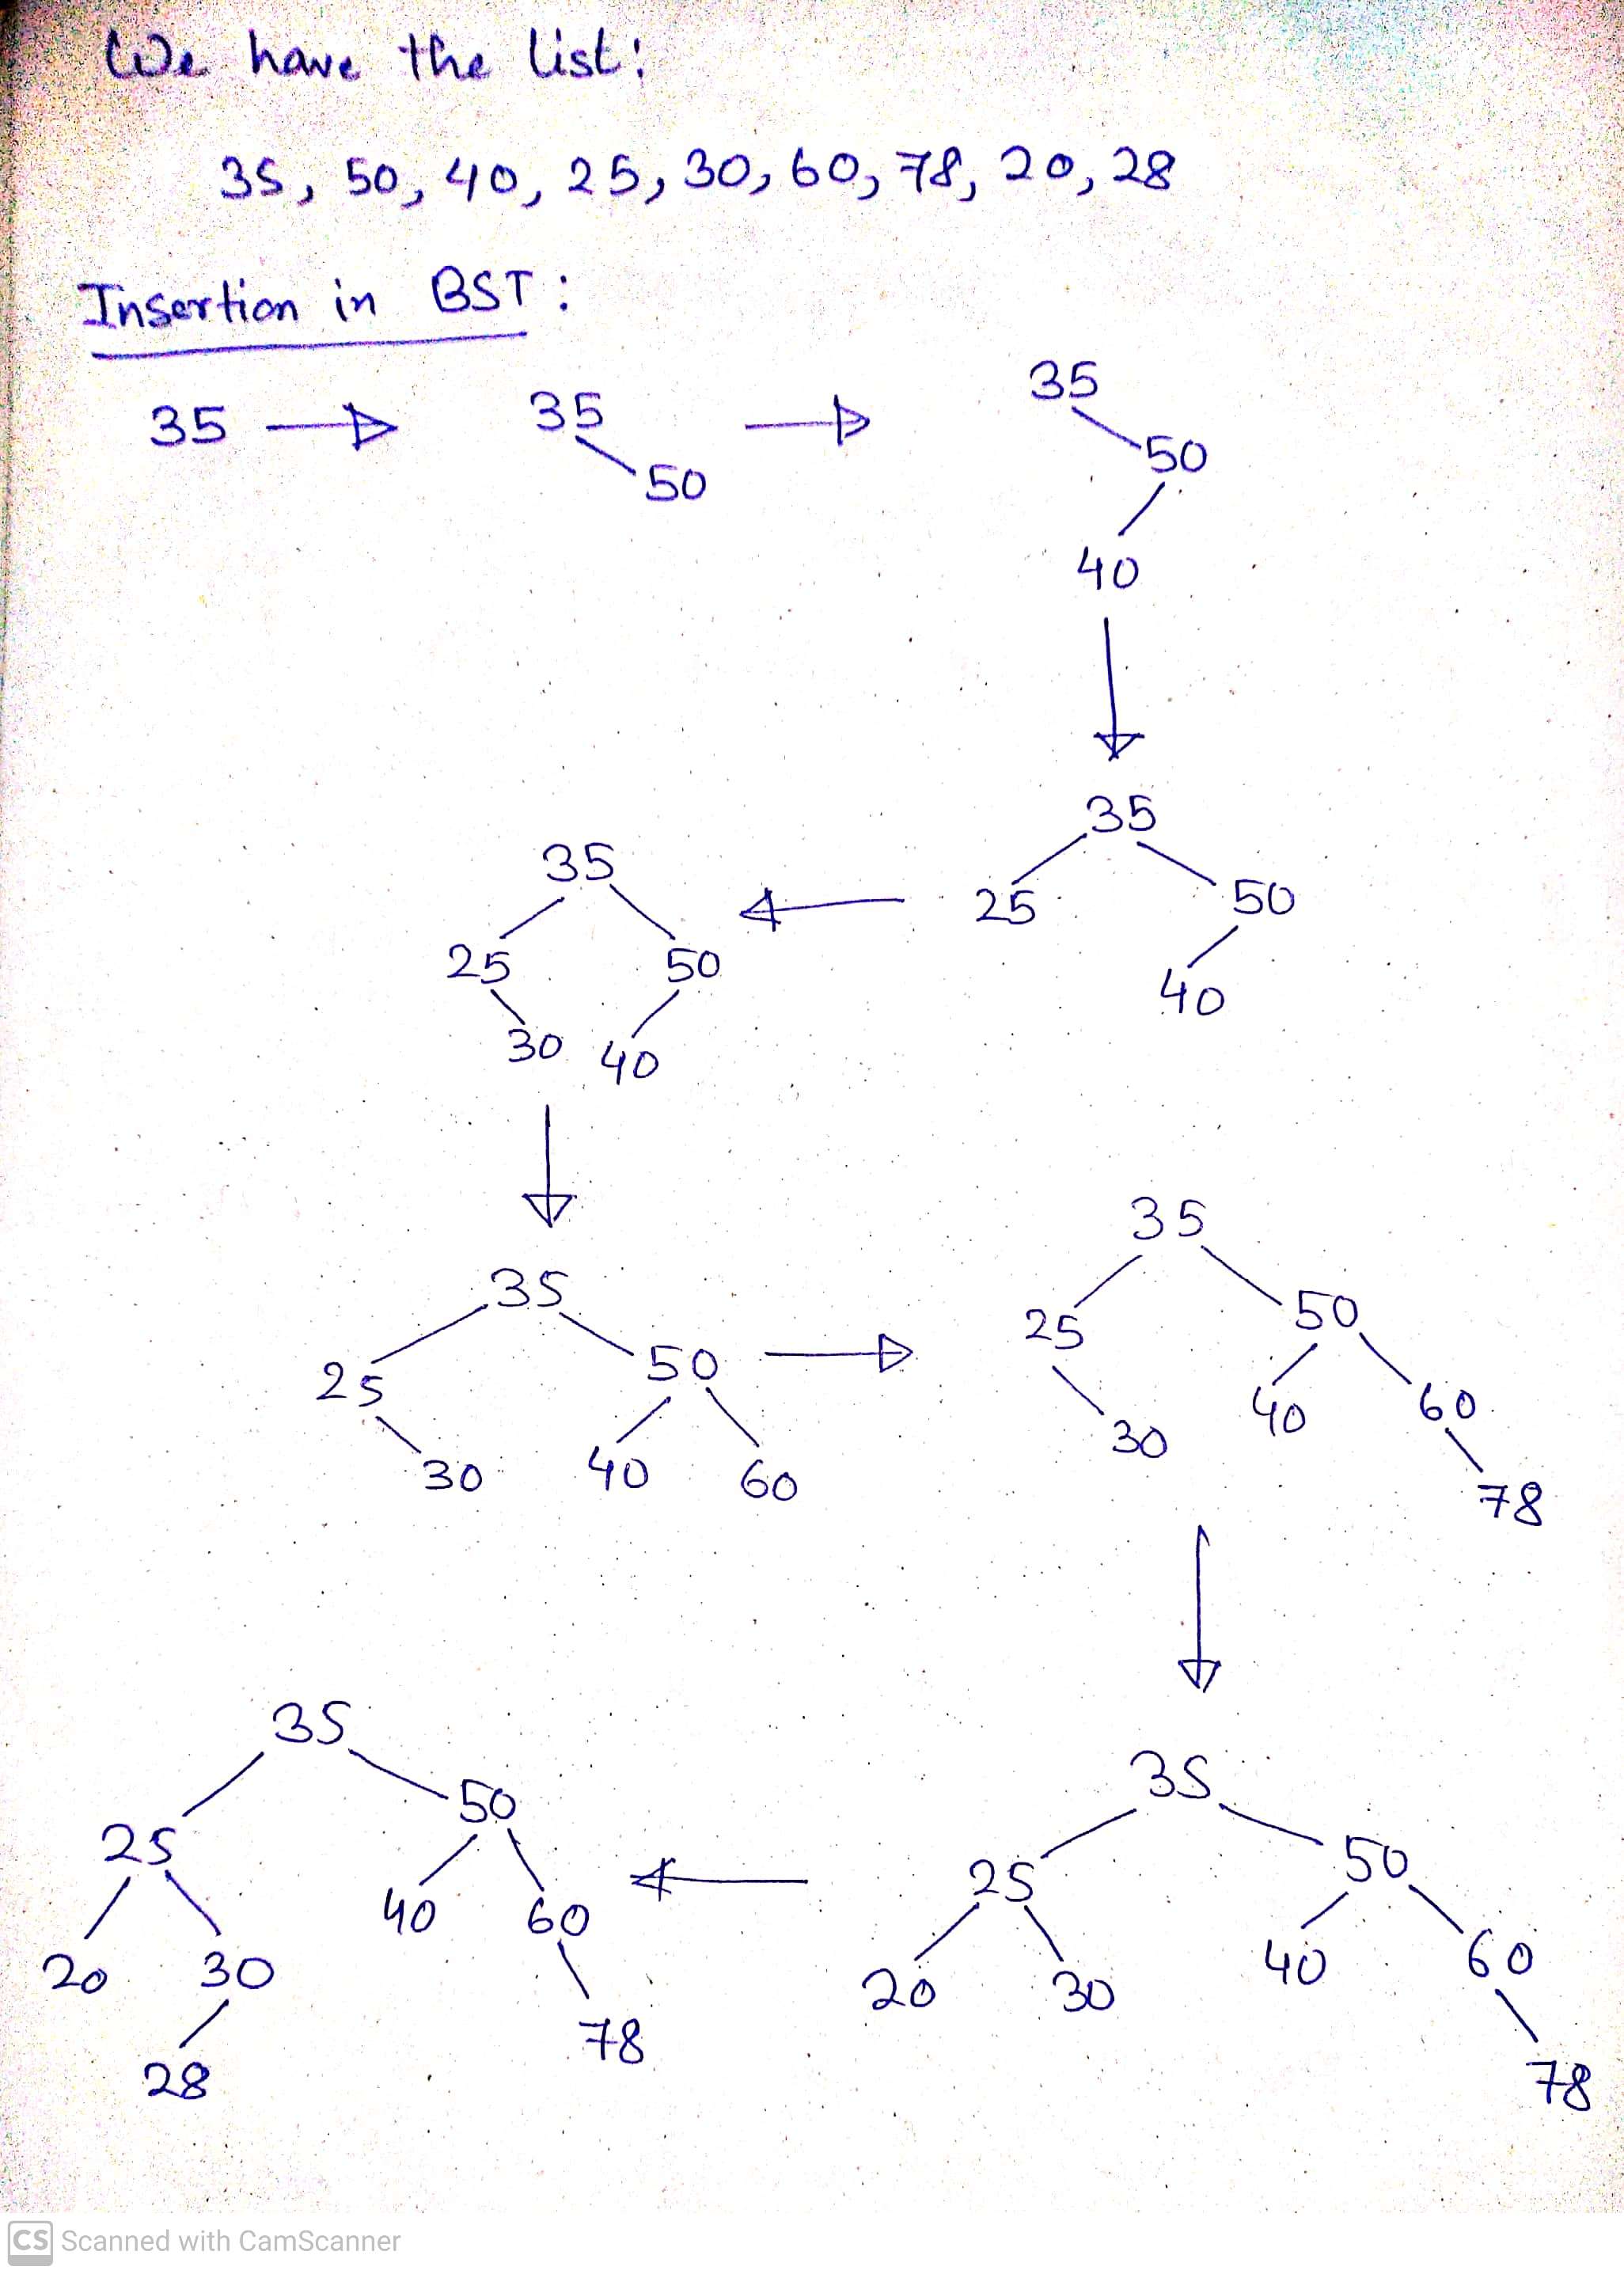 We have the list:
35, 50, 40, 25, 30, 60, 78, 20, 28
Insertion in BST:
35
35
50
35
50
40
35
25 50
40
35
25 50
30 40
35
25 50
30 40 60
35
25 50
30 40 60
78
35
25 50
20 30 40 60
78
35
25 50
20 30 40 60
28 78
CS Scanned with CamScanner